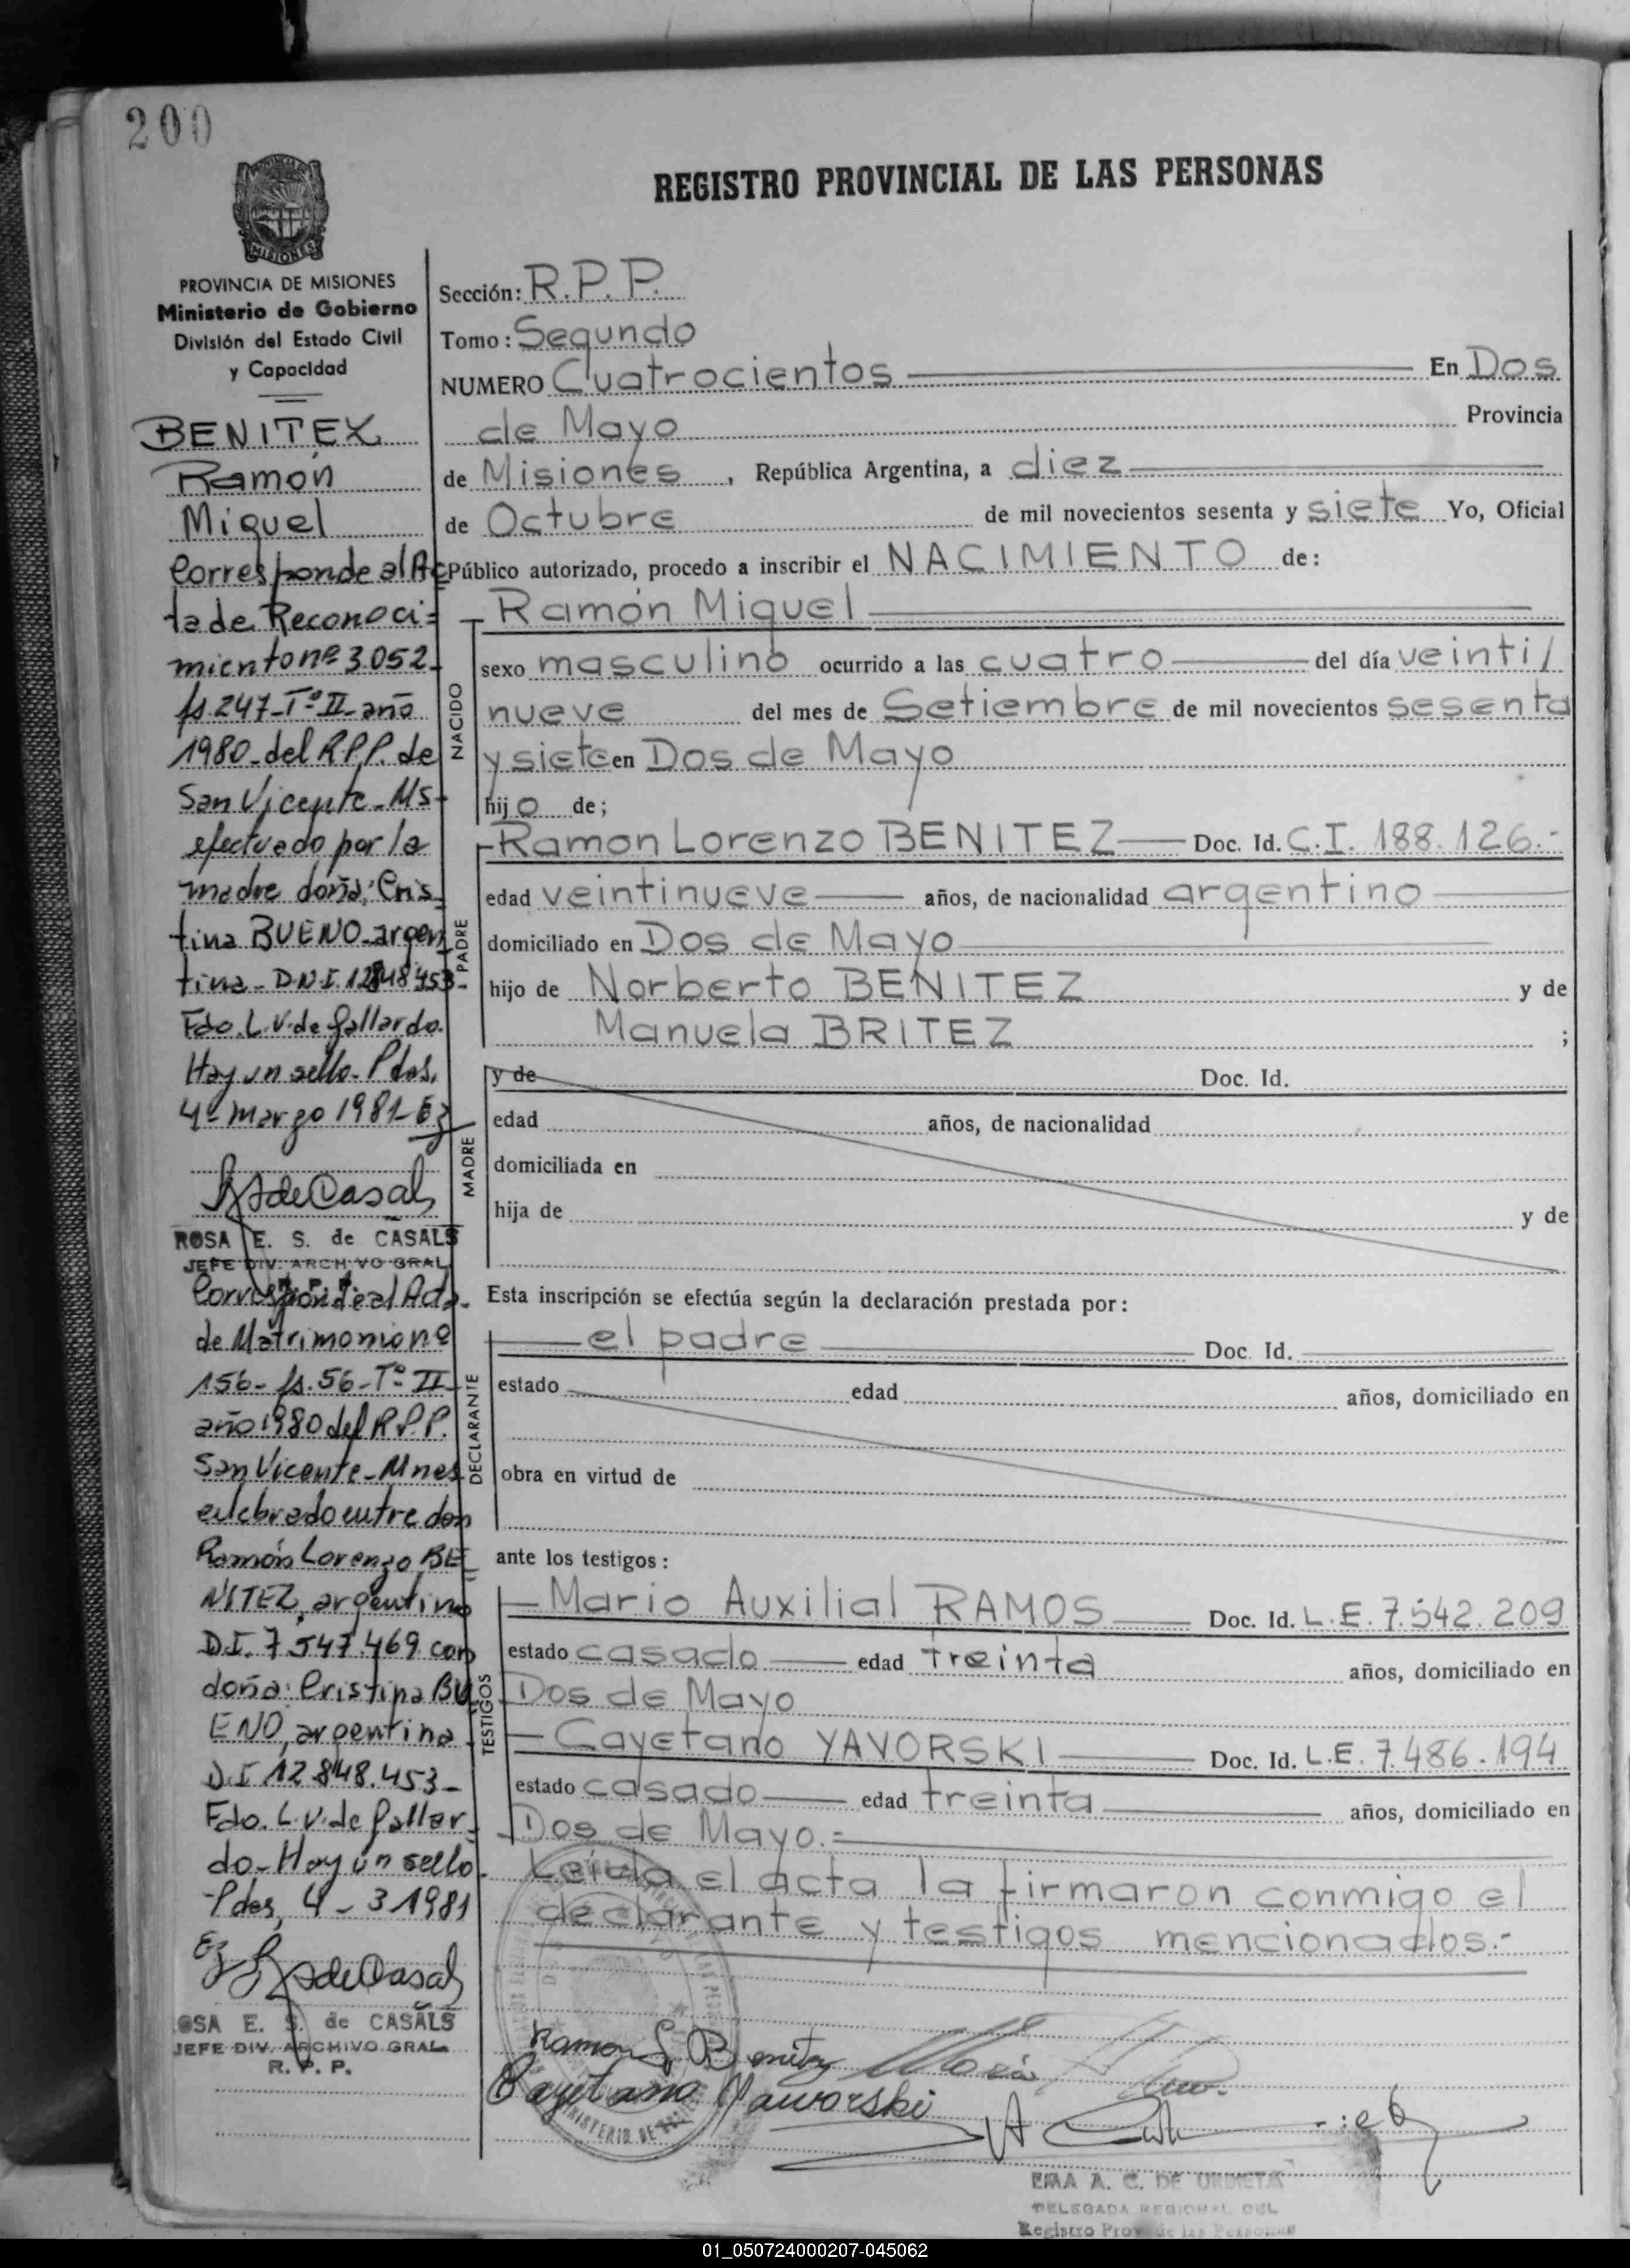 200
REGISTRO PROVINCIAL DE LAS PERSONAS
MISIONES
PROVINCIA DE MISIONES
Ministerio de Gobierno
División del Estado Civil
y Capacidad
BENITEZ
Ramón
Miguel
Corresponde al Ac
ta de Reconoci=
miento nº 3.052-
fs 247-Tº II-año
1980-del R.P.P. de
San Vicente-Ms-
efectuado por la
madre doña: Cris-
tina BUENO-argen
tina-D.N.I. 12848453-
Fdo. L.V. de Gallardo.
Hay un sello-Pdas,
4-marzo 1981-Ez
ROSA E. S. de CASALS
JEFE DIV. ARCHIVO GRAL
R. P. P.
Corresponde al Acta-
de Matrimonio nº
156-fs. 56-Tº II-
año 1980 del R.P.P.
San Vicente-Mnes
celebrado entre don
Ramón Lorenzo BE
NITEZ, argentino
D.I. 7.547.469 con
doña: Cristina BU
ENO, argentina
D.I 12.848.453-
Fdo. L.V. de Gallar-
do-Hay un sello-
Pdas, 4-3 1981
Ez
OSA E. S. de CASALS
JEFE DIV. ARCHIVO GRAL.
R. P. P.
Sección: R.P.P.
Tomo: Segundo
NUMERO Cuatrocientos En Dos
de Mayo Provincia
de Misiones, República Argentina, a diez
de Octubre de mil novecientos sesenta y siete Yo, Oficial
Público autorizado, procedo a inscribir el NACIMIENTO de:
NACIDO
Ramón Miguel
sexo masculino ocurrido a las cuatro del día veinti/
nueve del mes de Setiembre de mil novecientos sesenta
y siete en Dos de Mayo
hijo de;
PADRE
Ramon Lorenzo BENITEZ Doc. Id. C.I. 188.126.-
edad veintinueve años, de nacionalidad argentino
domiciliado en Dos de Mayo
hijo de Norberto BENITEZ y de
Manuela BRITEZ ;
MADRE
y de Doc. Id.
edad años, de nacionalidad
domiciliada en
hija de y de
Esta inscripción se efectúa según la declaración prestada por:
DECLARANTE
el padre Doc. Id.
estado edad años, domiciliado en
obra en virtud de
ante los testigos:
TESTIGOS
Mario Auxilial RAMOS Doc. Id. L.E. 7.542.209
estado casado edad treinta años, domiciliado en
Dos de Mayo
Cayetano YAVORSKI Doc. Id. L.E. 7.486.194
estado casado edad treinta años, domiciliado en
Dos de Mayo.=
Leida el acta la firmaron conmigo el
declarante y testigos mencionados.-
Ramon L Benitez
Cayetano Yaworski
EMA A. C. DE URBIETA
DELEGADA REGIONAL DEL
Registro Prov. de las Personas
01_050724000207-045062